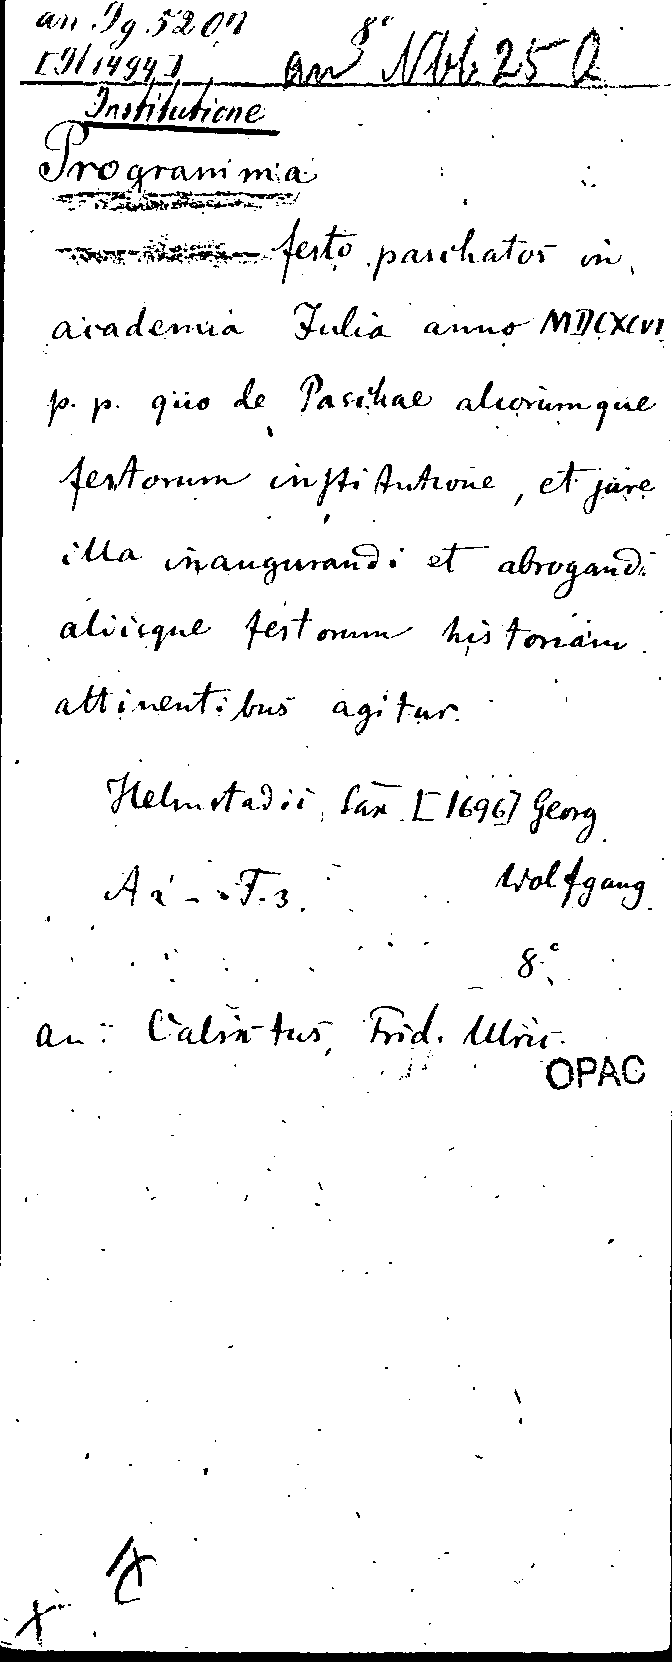 an Ig 5207 8°
[Il 1494] an Nbk 25 Q
Institutione
Programma
festo paschatos in
academia Julia anno MDCXCVI
p. p. quo de Paschae aliorumque
festorum institutione, et jure
illa inaugurandi et abrogandi
aliisque festorum historiam
attinentibus agitur.
Helmstadii, Sax [1696] Georg
Wolfgang
8°
an: Calixtus, Frid. Ulric.
OPAC